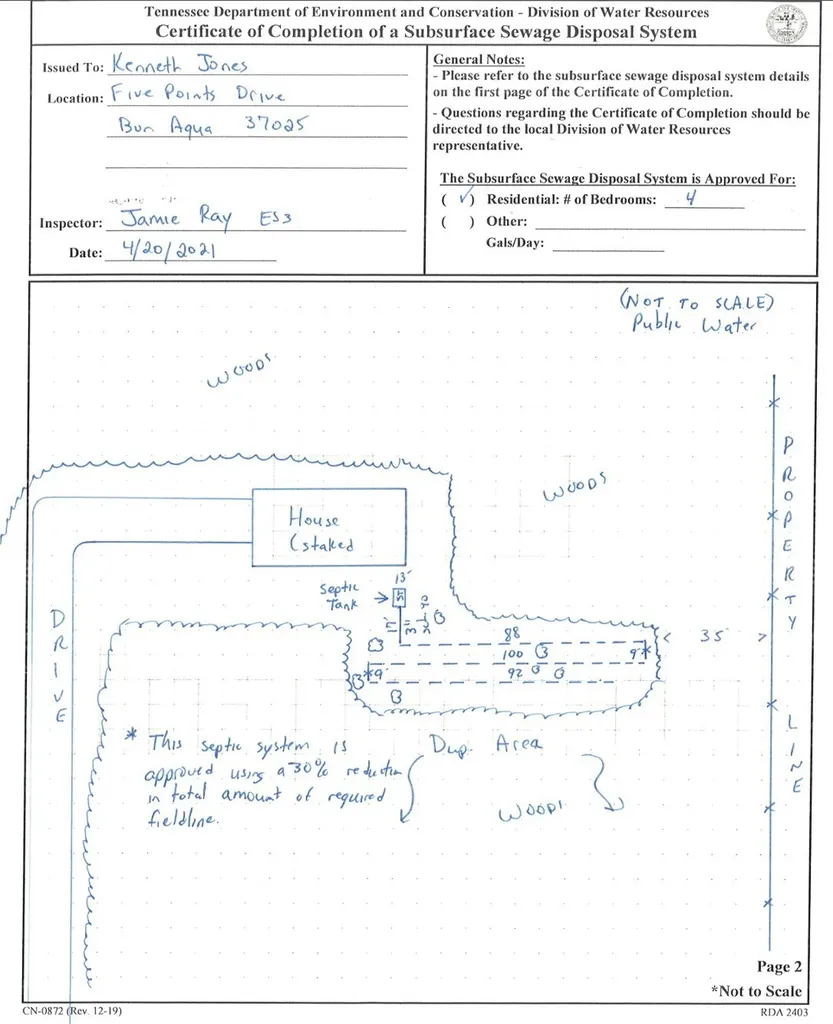 Tennessee Department of Environment and Conservation - Division of Water Resources
Certificate of Completion of a Subsurface Sewage Disposal System
Issued To: Kenneth Jones
Location: Five Points Drive
Bon Aqua 37025
Inspector: Jamie Ray ES3
Date: 4/20/2021
General Notes:
- Please refer to the subsurface sewage disposal system details
on the first page of the Certificate of Completion.
- Questions regarding the Certificate of Completion should be
directed to the local Division of Water Resources
representative.
The Subsurface Sewage Disposal System is Approved For:
( ✓ ) Residential: # of Bedrooms: 4
( ) Other:
Gals/Day:
(NOT TO SCALE)
Public Water
WOODS
WOODS
House
(staked
13'
Septic
Tank
ST
88
100
9'*
*9'
92
35'
PROPERTY LINE
DRIVE
* This septic system is
approved using a 30% reduction
in total amount of required
fieldline.
Dup. Area
WOODS
Page 2
*Not to Scale
CN-0872 (Rev. 12-19)
RDA 2403